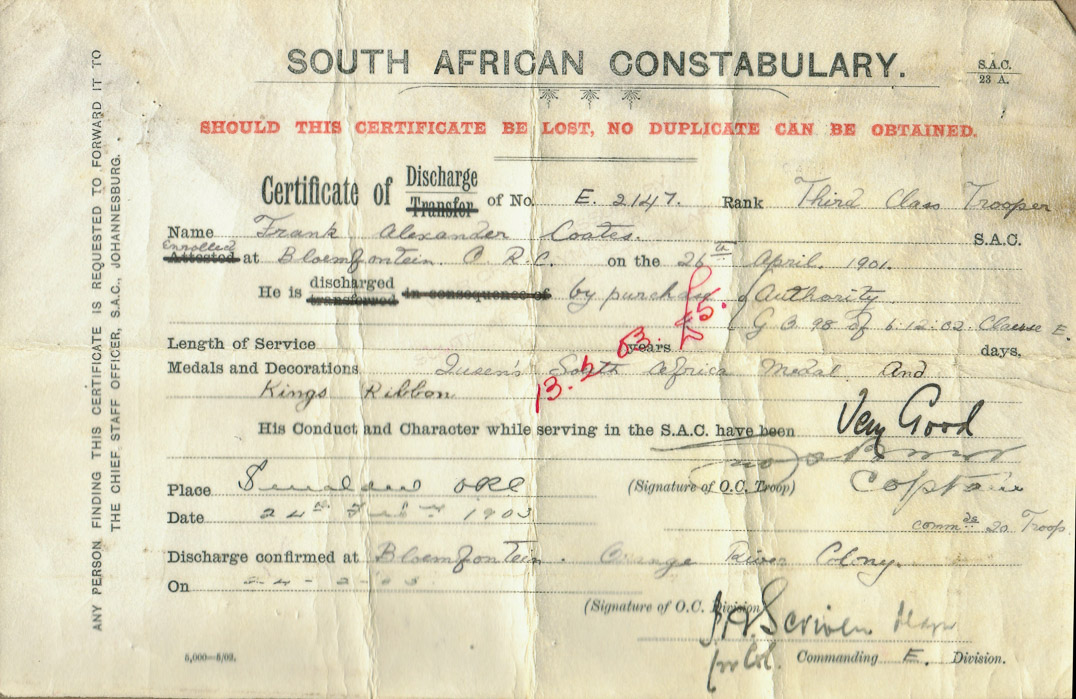 SOUTH AFRICAN CONSTABULARY.
S.A.C.
23 A.
SHOULD THIS CERTIFICATE BE LOST, NO DUPLICATE CAN BE OBTAINED.
ANY PERSON FINDING THIS CERTIFICATE IS REQUESTED TO FORWARD IT TO
THE CHIEF STAFF OFFICER, S.A.C., JOHANNESBURG.
Certificate of Discharge Transfer of No. E. 2147. Rank Third Class Trooper
Name Frank Alexander Coates. S.A.C.
Enrolled
Attested at Bloemfontein. O R.C. on the 26th April. 1901.
He is discharged transferred in consequence of by purchase £5. Authority
G O. 98 of 6.12.02. Clause E.
Length of Service years days.
13.2.03
Medals and Decorations Queen's South Africa Medal And
Kings Ribbon
His Conduct and Character while serving in the S.A.C. have been Very Good
(Signature of O.C. Troop) Captain
Place ORC
Date 24th 1903
commdg 20 Troop.
Discharge confirmed at Bloemfontein. Orange River Colony.
On
(Signature of O.C. Division)
Scriven
for Col. Commanding E. Division.
5,000—8/02.